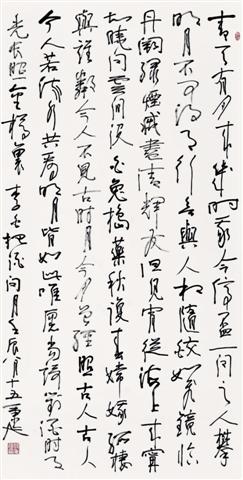 青天有月來幾時我今停盃一問之人攀
明月不可得月行却與人相隨皎如飛鏡臨
丹闕緑煙滅盡清輝發但見宵從海上來寧
知曉向雲間没白兔搗藥秋復春嫦娥孤棲
與誰鄰今人不見古時月今月曾經照古人古人
今人若流水共看明月皆如此唯願當歌對酒時月
光長照金樽裏 李白把酒問月壬辰八月十五